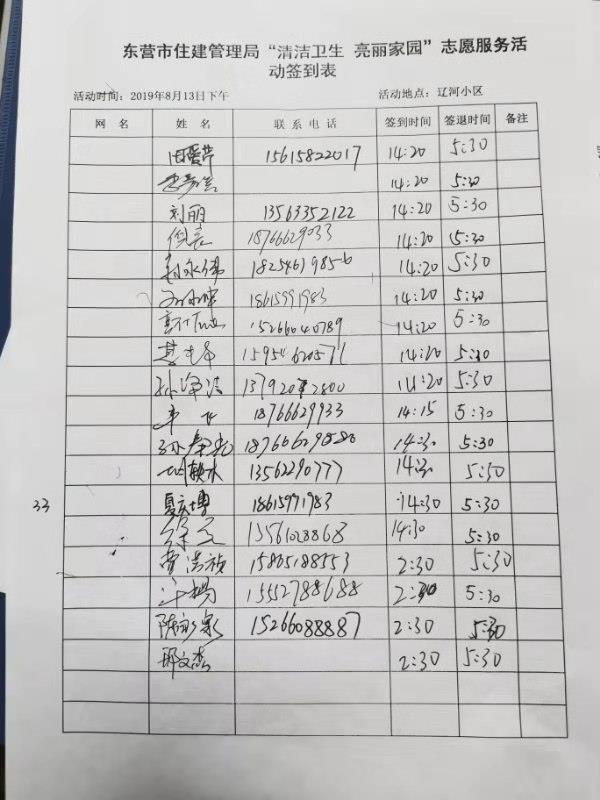 东营市住建管理局“清洁卫生 亮丽家园”志愿服务活
动签到表
活动时间：2019年8月13日下午 活动地点：辽河小区
网 名 姓 名 联系电话 签到时间 签退时间 备注
15615822017 14:20 5:30
14:20 5:30
刘丽 13563352122 14:20 5:30
倪亮 18766629033 14:20 5:30
孙永伟 18254619856 14:20 5:30
18615991983 14:20 5:30
15266040789 14:20 5:30
15954620571 14:20 5:30
孙净洁 14:20 5:30
18766629933 14:15 5:30
孙春光 14:30 5:30
13562290777 14:30 5:30
33 夏庆博 18615991983 14:30 5:30
徐元 14:30 5:30
曹洁祯 2:30 5:30
15552788688 2:30 5:30
陈永泉 15266088887 2:30 5:30
邢文杰 2:30 5:30